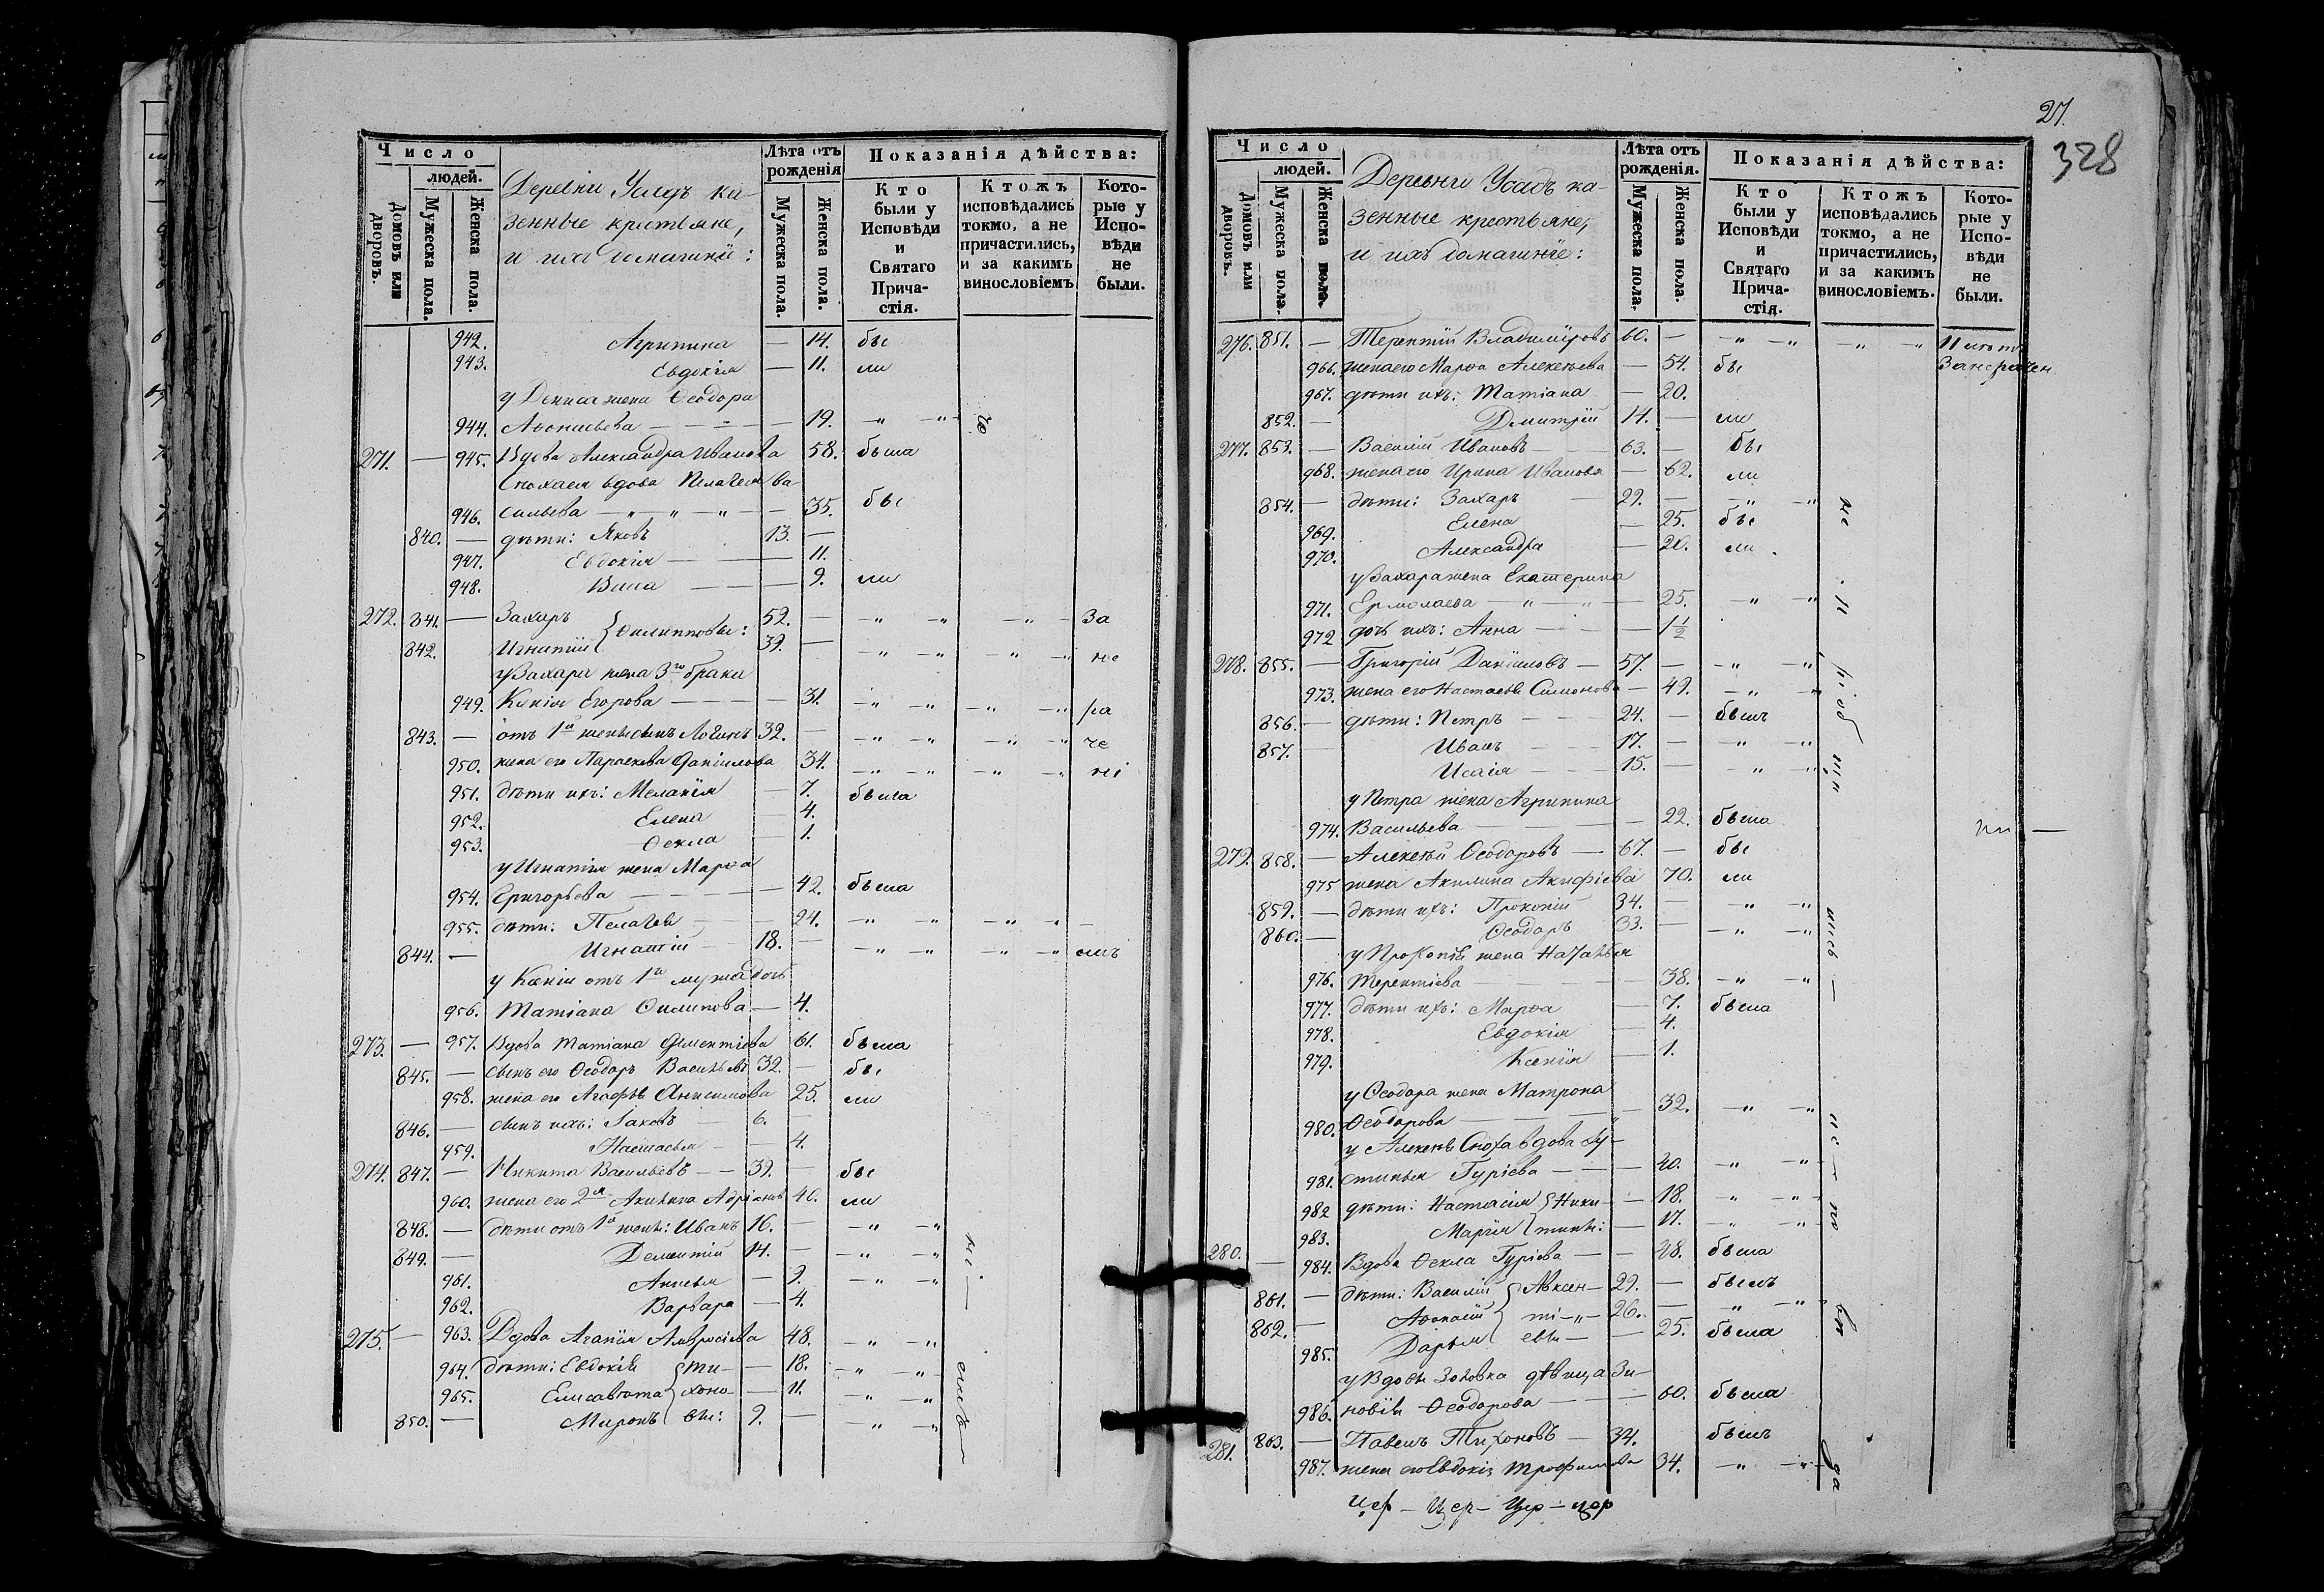 Число
людей.
Домовъ или дворовъ.
Мужеска пола.
Женска пола.
Деревни Усадъ ка-
зенные крестьяне,
и ихъ домашніе:
Лѣта отъ рожденія
Мужеска пола.
Женска пола.
Показанія дѣйства:
Кто были у Исповѣди и Святаго Прича-стія.
Ктожъ исповѣдались токмо, а не причастились, и за какимъ винословіемъ
Кото-рые у Испо-вѣди не были.
942. Агрипина — 14. бы
943. Евдокія — 11. ли
у Дениса жена Ѳеодора
944. Аѳонасьева — 19. — " — "
271. — 945. Вдова Александра Иванова 58. была
Сноха ея вдова Пелагея Ва-
946. сильева — " — " — " — 35. бы
840. — дѣти: Яковъ 13. —
947. Евдокія — 11.
948. — 9. ли
272. 841. — Захаръ 52. — За
842. Игнатій } Филипповы: 39. — не
у Захара жена 3го брака
949. Ксенія Егорова — 31. ра
843. — отъ 1й жены сынъ Логинъ 32. — че
950. жена его Параскева Данилова 34. ні
951. дѣти ихъ: Меланія — 7. была
952. Елена — 4.
953. Ѳекла — 1.
у Игнатія жена Марѳа
954. Григорьева — 42. была
955. дѣти: Пелагея — 24.
844. — Игнатій 18. — емъ
у Ксеніи отъ 1го мужа дочь
956. Татіана Филипова — 4.
273. — 957. Вдова Татіана Дементіева 61. была
845. — сынъ ея Ѳеодоръ Васильевъ 32. — бы
958. жена его Агафья Анисимова 25. ли
846. — сынъ ихъ: Іаковъ 6.
959. Настасья — 4.
274. 847. — Никита Васильевъ — 39. — бы
960. жена его 2я Акилина Адріанова 40. ли
848. — дѣти отъ 1й жены: Иванъ 16. —
849. — Дементій 14. —
961. Анисья — 9.
962. Варвара — 4.
275. — 963. Вдова Агапія Амвросіева 48.
964. дѣти: Евдокія } Ти- — 18.
965. Елисавета } хоно- — 11.
850. — Миронъ } вы: 9. —
27.
328
Число
людей.
Домовъ или дворовъ.
Мужеска пола.
Женска пола.
Деревни Усадъ ка-
зенные крестьяне,
и ихъ домашніе:
Лѣта отъ рожденія.
Мужеска пола.
Женска пола.
Показанія дѣйства:
Кто были у Исповѣди и Святаго Прича-стія.
Ктожъ исповѣдались токмо, а не причастились, и за какимъ винословіемъ.
Кото-рые у Испо-вѣди не были.
276. 851. — Терентій Владиміровъ 60. —
966. жена его Марѳа Алексѣева — 54. бы
967. дѣти ихъ: Татіана — 20.
852. — Дмитрій 14. — ли
277. 853. — Василій Ивановъ 63. — бы
968. жена его Ирина Иванова — 62. ли
854. — дѣти: Захаръ — 29. —
969. Елена — 25. бы
970. Александра — 20. ли
у Захара жена Екатерина
971. Ермолаева — " — " — 25.
972 дочь ихъ: Анна — 1½
278. 855. — Григорій Даниловъ — 57. —
973. жена его Настасья Симонова — 49.
856. — дѣти: Петръ — 24. — былъ
857. Иванъ — 17. —
Исаія — 15. —
у Петра жена Агрипина
974. Васильева — 22. была
279. 858. — Алексѣй Ѳеодоровъ — 67. — бы
975 жена Акилина Акифіева 70. ли
859. — дѣти ихъ: Прокопій 34. —
860. — Ѳеодоръ 33. —
у Прокопія жена Наталья
976. Терентіева — 38.
977. дѣти ихъ: Марѳа — 7. была
978. Евдокія — 4.
979. Ксенія — 1.
у Ѳеодора жена Матрона
980. Ѳеодорова — 32.
у Алексѣя Сноха вдова Іу-
981. стинья Гуріева — 40.
982 дѣти: Настасія } Ники- — 18.
983. Марія } тины: — 17.
280. — 984. Вдова Ѳекла Гуріева — 48. была
861. — дѣти: Василій } Авксен- 29. — былъ
862. — Аѳонасій } ті- " - 26. —
985. Дарья } евы — 25. была
у Вдовы Золовка дѣвица Зи-
986. новія Ѳеодорова — 60. была
281. 863. — Павелъ Тихоновъ — 34. былъ
987. жена его Евдокія Трофимова 34.